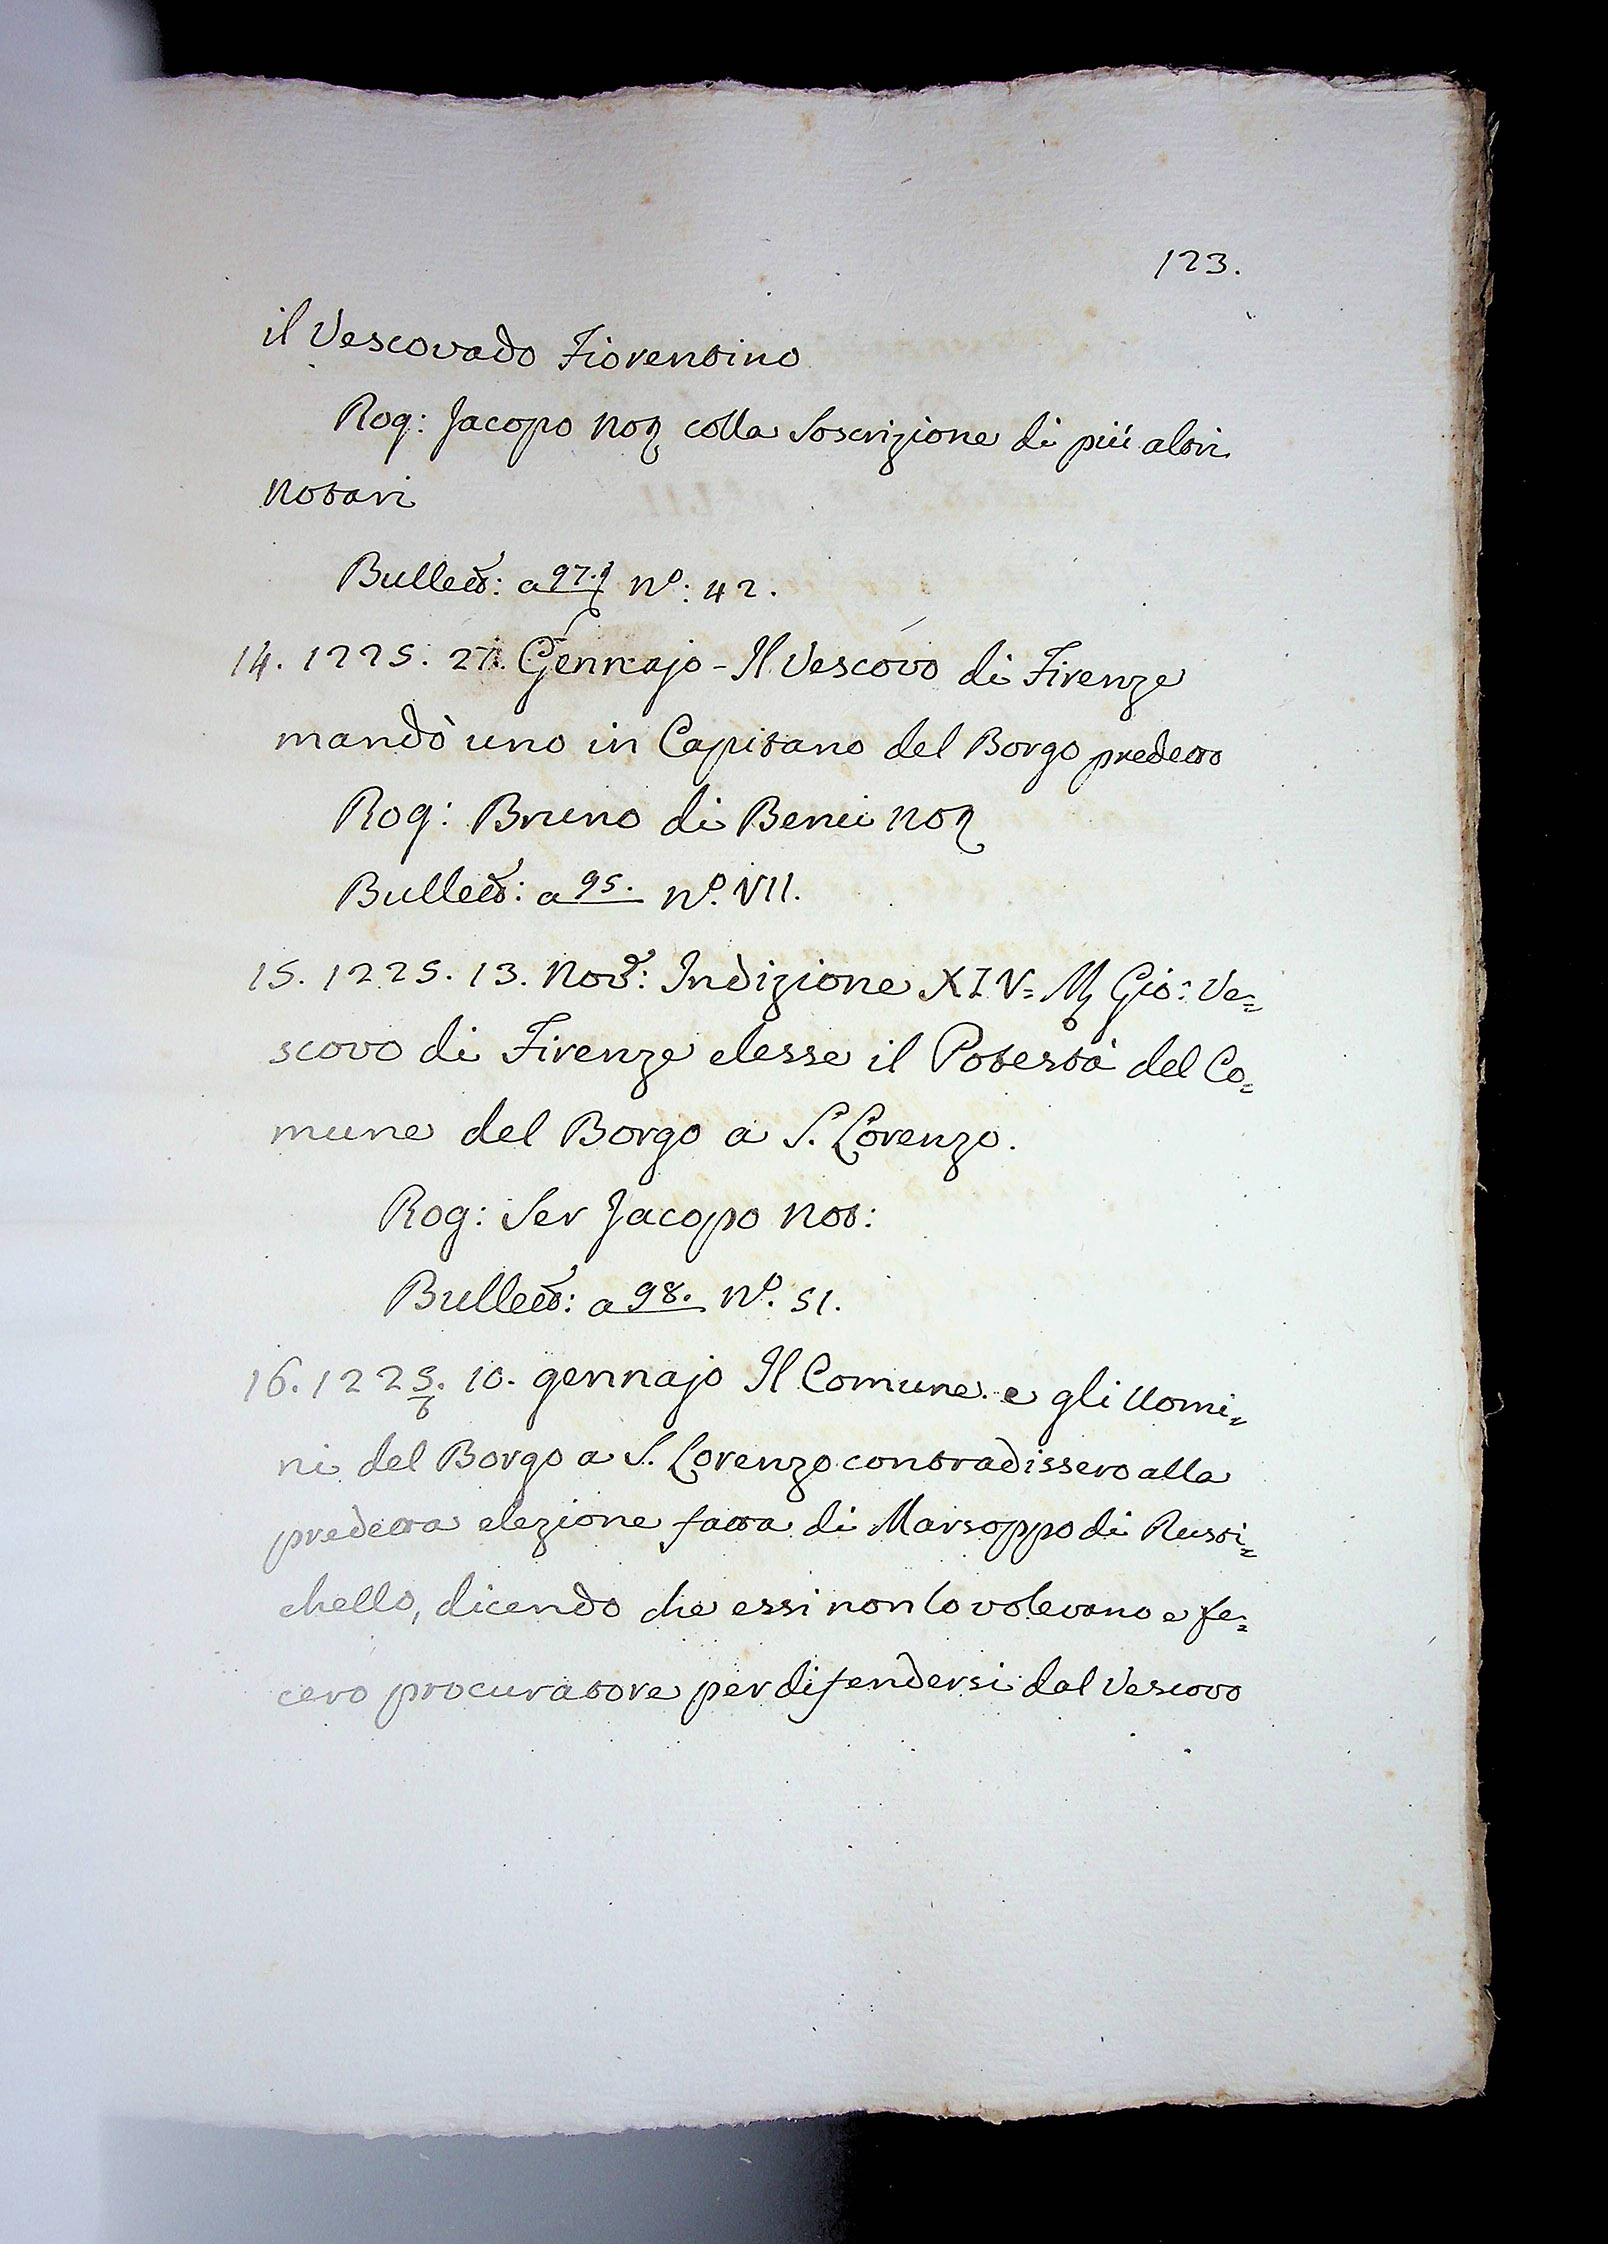 123.
il Vescovado Fiorentino
Rog: Jacopo Not colla Soscrizione di più altri
Notari
Bullett: a 97.t Nº: 42.
14. 1225. 27. Gennajo - Il Vescovo di Firenze
mandò uno in Capitano del Borgo predetto
Rog: Bruno di Benci Not
Bullett: a 95. Nº. VII.
15. 1225. 13. Nov.e: Indizione XIV= M Gio: Ve=
scovo di Firenze elesse il Potestà del Co=
mune del Borgo a S. Lorenzo.
Rog: Ser Jacopo Not:
Bullett: a 98. Nº. 51.
16. 1225/6. 10. gennajo Il Comune e gli Uomi=
ni del Borgo a S. Lorenzo contradissero alla
predetta elezione fatta di Marsoppo di Rusti=
chello, dicendo che essi non lo volevano e fe=
cero procuratore per difendersi dal Vescovo